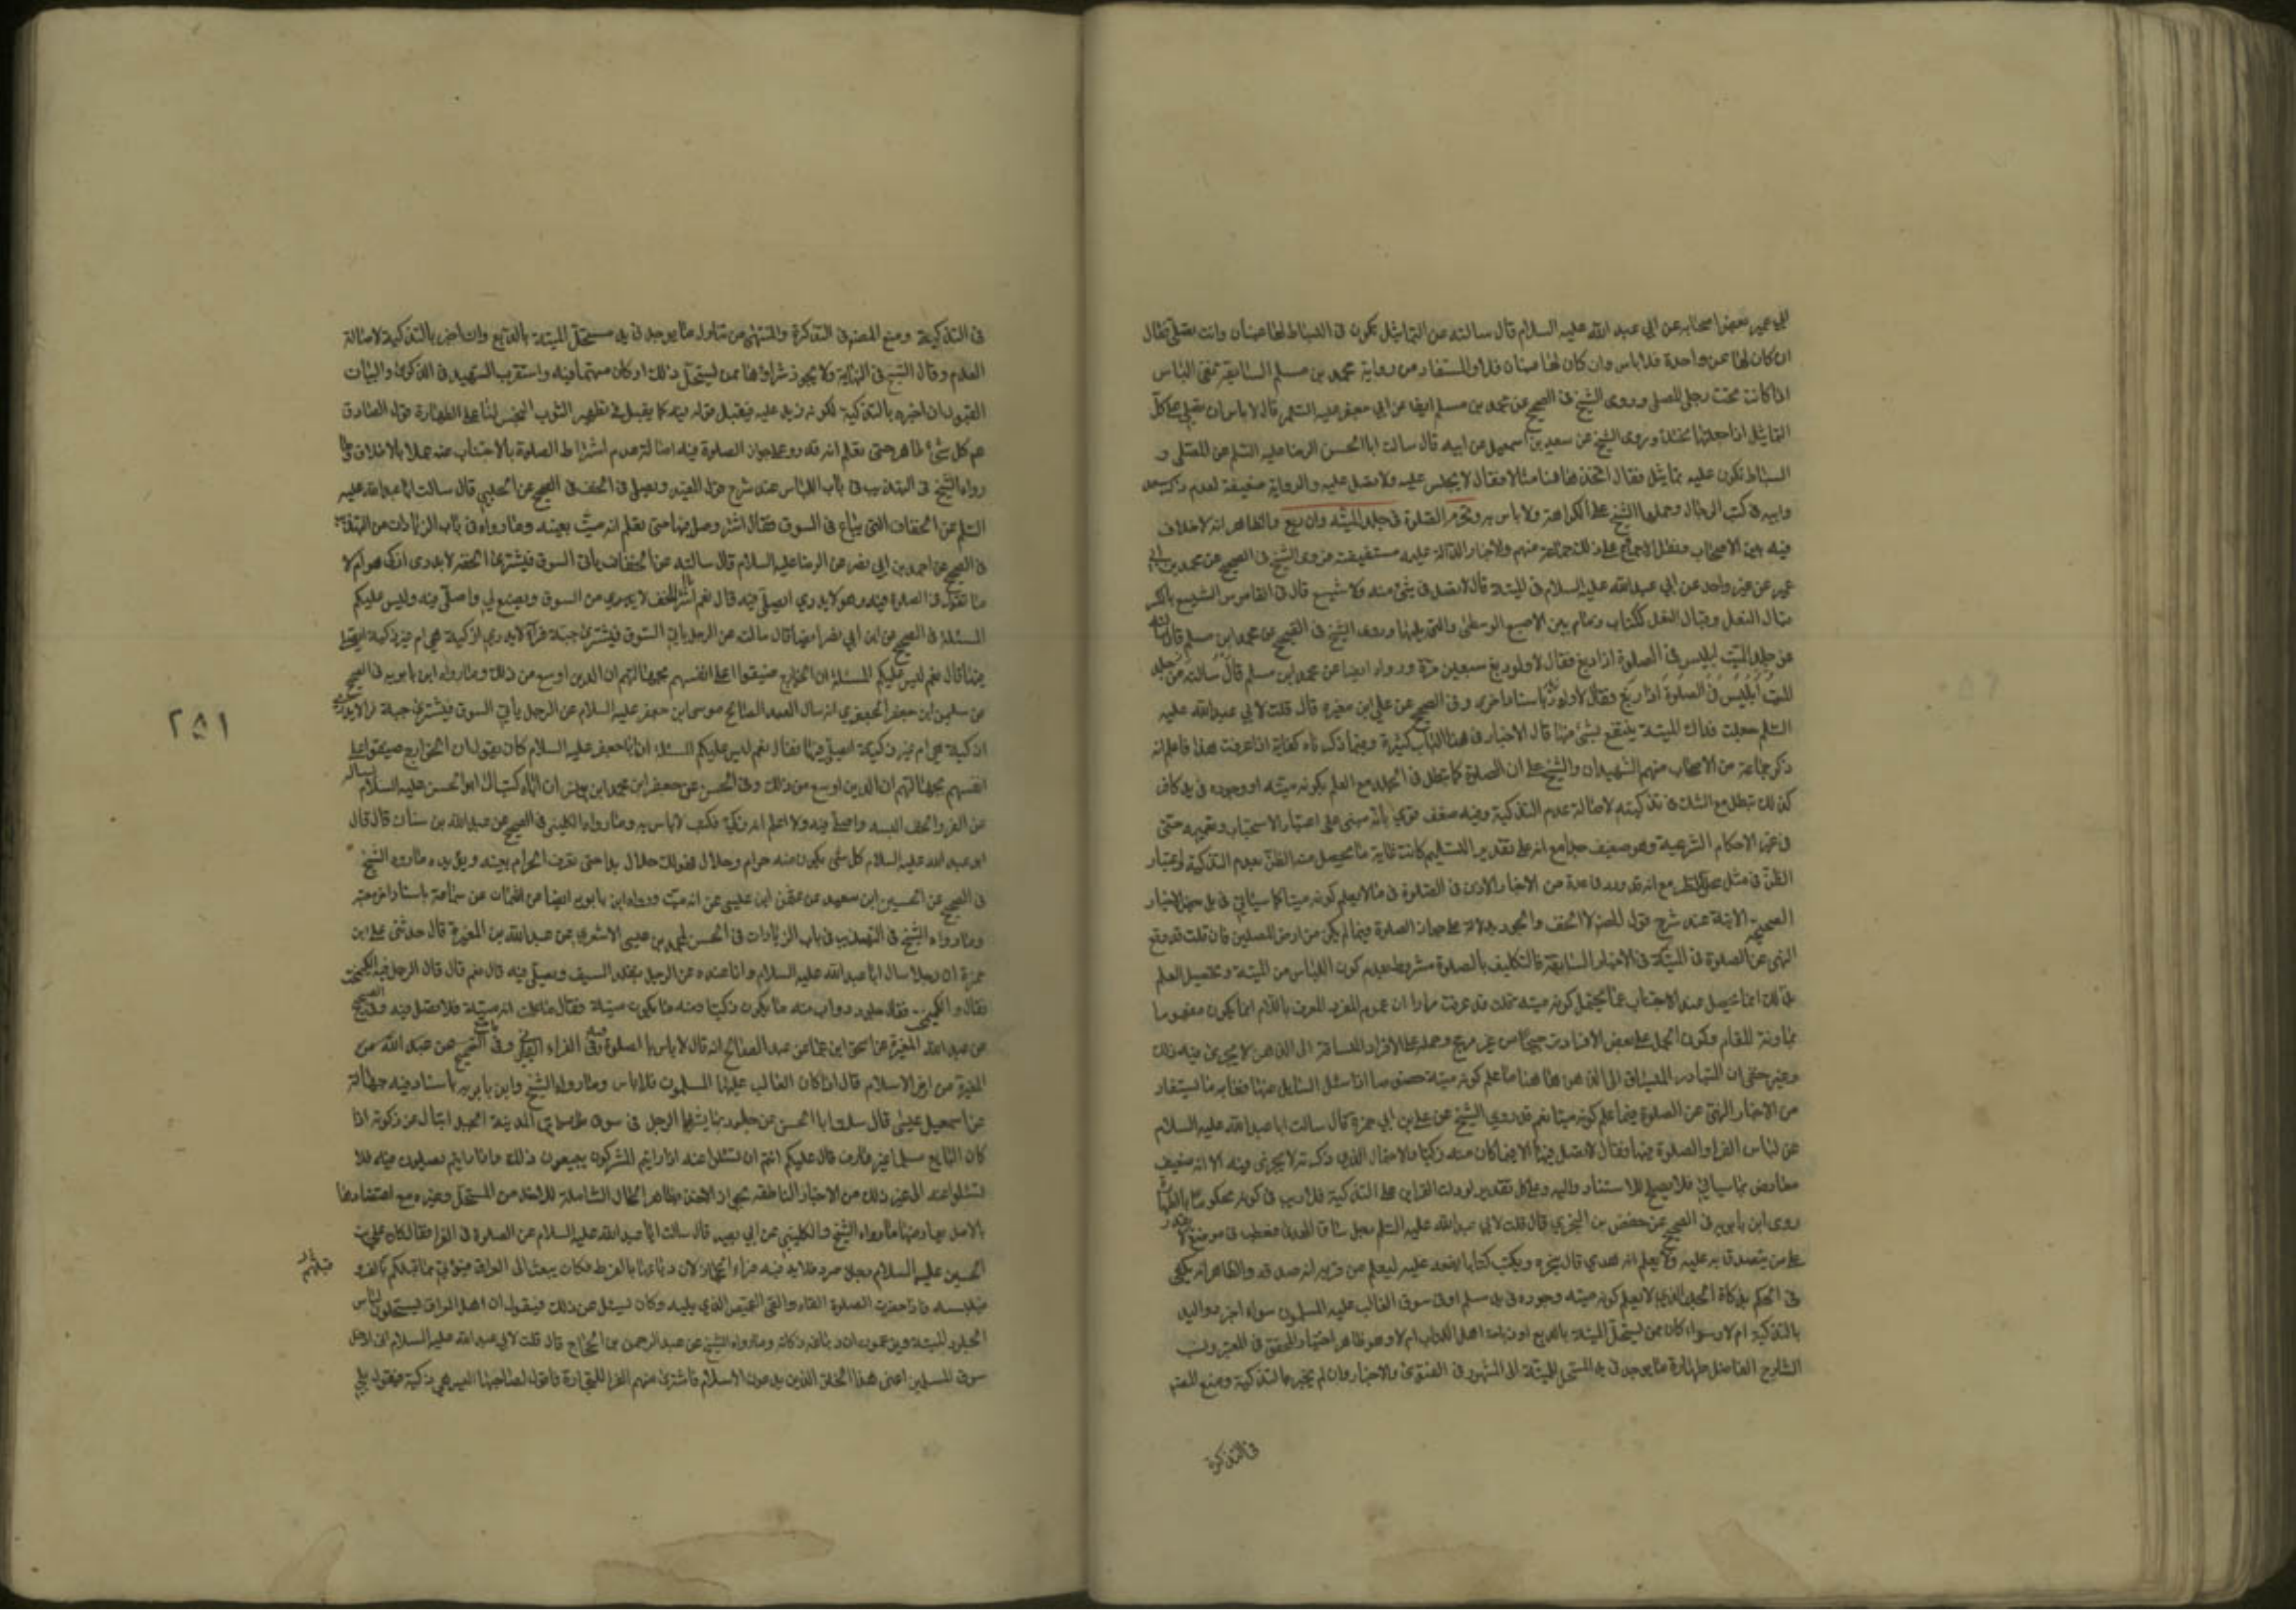 ابي عمير عن بعض اصحابه عن ابي عبد الله عليه السلام قال سالته عن التماثيل تكون في البساط لها عينان وانت تصلي فقال
ان كان لها عين واحدة فلا باس وان كان لها عينان فلا والمستفاد من رواية محمد بن مسلم السابقة نفي الباس
اذا كانت تحت رجل المصلي وروى الشيخ في الصحيح عن محمد بن مسلم ايضا عن ابي جعفر عليه السلم قال لا باس ان تصلي على كل
التماثيل اذا جعلتها تحتك وروى الشيخ عن سعد بن اسمعيل عن ابيه قال سالت ابا الحسن الرضا عليه السلم عن المصلى و
البساط تكون عليه تماثيل فقال لا يجلس عليه ولا يصلى عليه والرواية ضعيفة لعدم
وابيه في كتب الرجال وحملها الشيخ على الكراهة ولا باس به وتحرم الصلوة في جلد الميتة وان دبغ والظاهر انه لا خلاف
فيه بين الاصحاب ونقل الاجماع على ذلك جماعة منهم والاخبار الدالة عليه مستفيضة فروى الشيخ في الصحيح عن محمد بن ابي
عمير عن غير واحد عن ابي عبد الله عليه السلام في الميتة قال لا تصل في شئ منه ولا شسع قال في القاموس الشسع بالكسر
قبال النعل وقبال النعل ككتاب زمام بين الاصبع الوسطى والتي تليها وروى الشيخ في الصحيح عن محمد ابن مسلم قال سالته
عن جلد الميت ايلبس في الصلوة اذا دبغ فقال لا ولو دبغ سبعين مرة ورواه ايضا عن محمد ابن مسلم قال سالته عن جلد
الميت ايلبس في الصلوة اذا دبغ فقال لا ولو باسناد اخرى وفي الصحيح عن علي ابن مغيرة قال قلت لابي عبد الله عليه
السلم جعلت فداك الميتة ينتفع بشئ منها قال لا والاخبار في هذا الباب كثيرة وفيما ذكرناه كفاية اذا عرفت هذا فاعلم انه
ذكر جماعة من الاصحاب منهم الشهيدان والشيخ علي ان الصلوة كما تبطل في الجلد مع العلم بكونه ميتة او وجوده في يد كافر
كذلك تبطل مع الشك في تذكيته لاصالة عدم التذكية وفيه ضعف قوي لانه مبني على اعتبار الاستصحاب وتعميمه حتى
في غير الاحكام الشرعية وهو ضعيف جدا مع انه على تقدير التسليم كانت غاية ما يحصل منه الظن بعدم التذكية واعتبار
الظن في مثل محل النظر مع انه قد ورد في عدة من الاخبار الاذن في الصلوة في ما لا يعلم كونه ميتا كما سياتي
الصحيحة الاتية عند شرح قول المصنف لا الخف والجورب دلالة على جواز الصلوة فيما لم يكن من ارض المصلين فان قلت قد وقع
النهي عن الصلوة في الميتة في الاخبار السابقة فالتكليف بالصلوة مشروط بعدم كون اللباس من الميتة وتحصيل العلم
بذلك انما يحصل عند الاجتناب عما يحتمل كونه ميتة قلت قد عرفت مرارا ان عموم المفرد المعرف باللام انما يكون مفهوما
بمعاونة المقام وكون الحمل على بعض الافراد ترجيحا من غير مرجح وحمله على الافراد المتسافة الى الذهن لا يجري فيه ذلك
وغير خفي ان المتبادر المنساق الى الذهن هاهنا ما علم كونه ميتة خصوصا اذا سئل السائل عنها وغاية ما يستفاد
من الاخبار النهي عن الصلوة فيما علم كونه ميتا نعم قد روى الشيخ عن علي بن ابي حمزة قال سالت ابا عبد الله عليه السلام
عن لباس الفراء والصلوة فيها فقال لا تصل فيها الا فيما كان منه ذكيا والاحتمال الذي ذكرته لا يجري فيه الا انه ضعيف
معارض بما سياتي فلا يصلح للاستناد اليه وعلى كل تقدير لو دلت القراين على التذكية فلا ريب في كونه محكوما بالطهارة
روى ابن بابويه في الصحيح عن حفص بن البختري قال قلت لابي عبد الله عليه السلم رجل ساق الهدي فعطب في موضع لا يقدر
على من يتصدق به عليه ولا يعلم انه هدي قال ينحره ويكتب كتابا يضعه عليه ليعلم من مر به انه صدقة والظاهر انه يكفي
في الحكم بذكاة الجلد الذي لا يعلم كونه ميتة وجوده في يد مسلم او في سوق الغالب عليه المسلمون سواء اخبر ذو اليد
بالتذكية ام لا وسواء كان ممن يستحل الميتة بالدبغ او ذباحة اهل الكتاب ام لا وهو ظاهر اختيار المحقق في المعتبر ونسب
الشارح الفاضل طهارة ما يوجد في يد المستحل للميتة الى المشهور في الفتوى والاخبار وان لم يخبر بالتذكية ومنع المصنف
في التذكرة
في التذكرة ومنع المصنف في التذكرة والمنتهى من تناول ما يوجد في يد مستحل الميتة بالدبغ وان اخبر بالتذكية لاصالة
العدم وقال الشيخ في النهاية ولا يجوز شراؤها ممن يستحل ذلك او كان متهما فيه واستقرب الشهيد في الذكرى والبيان
القبول ان اخبر بالتذكية لكونه ذي يد عليه فيقبل قوله فيه كما يقبل في تطهير الثوب النجس لنا على الطهارة قول الصادق
عم كل شئ طاهر حتى تعلم انه قذر وعلى جواز الصلوة فيه اصالة عدم اشتراط الصلوة بالاجتناب عنه عملا بالاطلاق وما
رواه الشيخ في التهذيب في باب اللباس عند شرح قول المفيد ويصلي في الخف في الصحيح عن الحلبي قال سالت ابا عبد الله عليه
السلم عن الخفاف التي تباع في السوق فقال اشتر وصل فيها حتى تعلم انه ميت بعينه وما رواه في باب الزيادات من التهذيب
في الصحيح عن احمد بن ابي نصر عن الرضا عليه السلام قال سالته عن الخفاف ياتي السوق فيشتري الخف لا يدري اذكي هو ام لا
ما تقول في الصلوة فيه وهو لا يدري ايصلي فيه قال نعم انا اشتري الخف من السوق ويصنع لي واصلي فيه وليس عليكم
المسئلة وفي الصحيح عن ابن ابي نصر ايضا قال سالت عن الرجل ياتي السوق فيشتري جبة فراء لا يدري اذكية هي ام غير ذكية ايصلي
فيها قال نعم ليس عليكم المسئلة ان الخوارج ضيقوا على انفسهم بجهالتهم ان الدين اوسع من ذلك وما رواه ابن بابويه في الصحيح
عن سليمن ابن جعفر الجعفري انه سال العبد الصالح موسى ابن جعفر عليه السلام عن الرجل ياتي السوق فيشتري جبة فراء لا يدري
اذكية هي ام غير ذكية ايصلي فيها فقال نعم ليس عليكم المسئلة ان ابا جعفر عليه السلام كان يقول ان الخوارج ضيقوا على
انفسهم بجهالتهم ان الدين اوسع من ذلك وفي الحسن عن جعفر ابن محمد ابن يونس ان اباه كتب الى ابي الحسن عليه السلام يساله
عن الفرو والخف البسه واصلي فيه ولا اعلم انه ذكي فكتب لا باس به وما رواه الكليني في الصحيح عن عبد الله بن سنان قال قال
ابو عبد الله عليه السلام كل شئ يكون منه حرام وحلال فهو لك حلال ابدا حتى تعرف الحرام بعينه ويؤيده ما رواه الشيخ
في الصحيح عن الحسين ابن سعيد عن عثمن ابن عيسى عن سماعة باسناد اخر معتبر
وما رواه الشيخ في التهذيب في باب الزيادات في الحسن لمحمد بن عيسى الاشعري عن عبد الله بن المغيرة قال حدثني علي ابن
حمزة ان رجلا سال ابا عبد الله عليه السلام وانا عنده عن الرجل يتقلد السيف ويصلي فيه قال نعم قال فقال الرجل فيه الكيمخت
فقال وما الكيمخت فقال جلود دواب منه ما يكون ذكيا ومنه ما يكون ميتة فقال ما علمت انه ميتة فلا تصل فيه وفي الصحيح
عن عبد الله المغيرة عن اسحق ابن عمار عن عبد الصالح انه قال لا باس بالصلوة في الفراء اليماني وفي
الاسلام قال اذا كان الغالب عليها المسلمون فلا باس وما رواه الشيخ وابن بابويه باسناد فيه جهالة
عن اسمعيل عيسى قال سالت ابا الحسن عن جلود يشتريها الرجل في سوق من اسواق الجبل ايسال عن ذكوته اذا
كان البايع مسلما غير عارف قال عليكم انتم ان تسئلوا عنه اذا رايتم المشركون يبيعون ذلك واذا رايتم يصلون فيه فلا
تسئلوا عنه الى غير ذلك من الاخبار الناطقة بجواز الاخذ بظاهر الحال الشاملة للاخذ من المستحل وغيره مع اعتضادها
بالاصل ما رواه الشيخ والكليني عن ابي بصير قال سالت ابا عبد الله عليه السلام عن الصلوة في الفراء فقال كان علي بن
الحسين عليه السلام رجلا صرد فلا يدفيه فراء الحجاز لان دباغها بالقرظ فكان يبعث الى العراق فيؤتى مما قبلكم بالفرو
قبلهم
فيلبسه فاذا حضرت الصلوة القاه والقى القميص الذي يليه وكان يسئل عن ذلك فيقول ان اهل العراق يستحلون لباس
الجلود الميتة ويزعمون ان دباغه ذكاته وما رواه الشيخ عن عبد الرحمن بن الحجاج قال قلت لابي عبد الله عليه السلام اني ادخل
سوق المسلمين اعنى هذا الخلق الذين يدعون الاسلام فاشتري منهم الفراء للتجارة فاقول لصاحبها اليس هي ذكية فيقول بلى
٢٥١